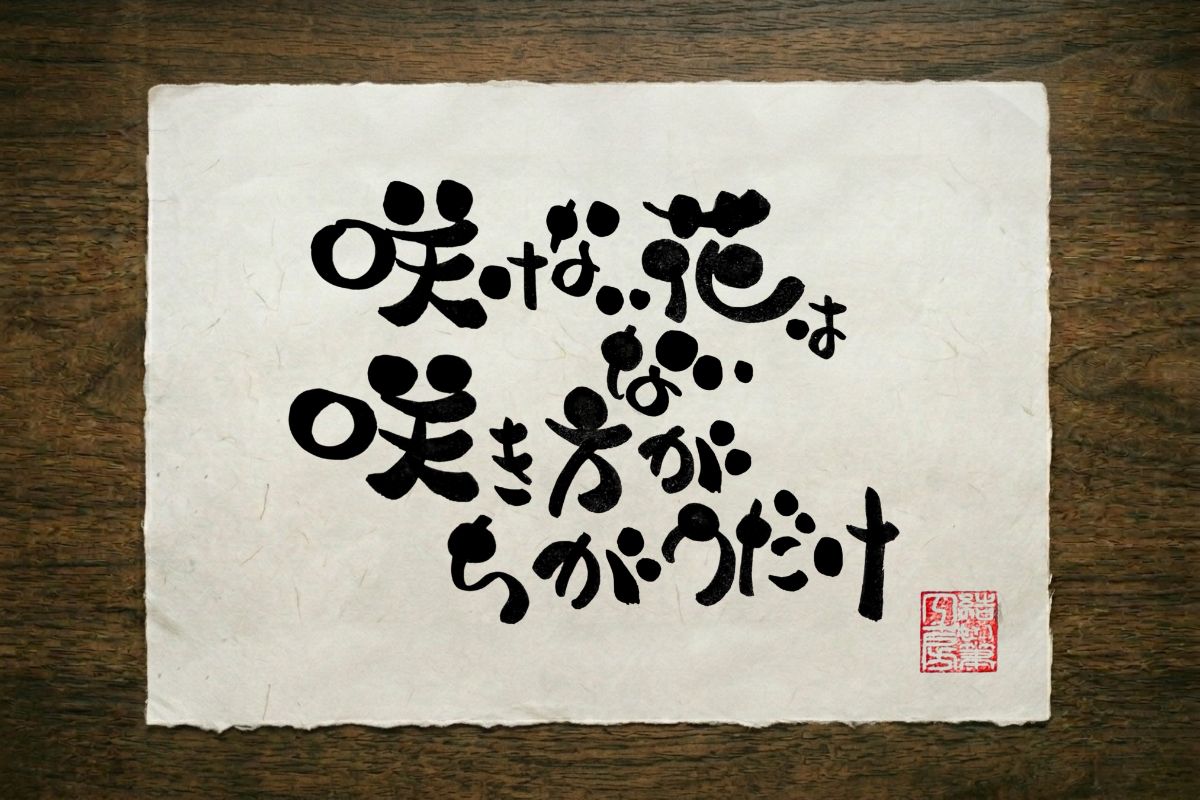 咲けない花は
ない
咲き方が
ちがうだけ